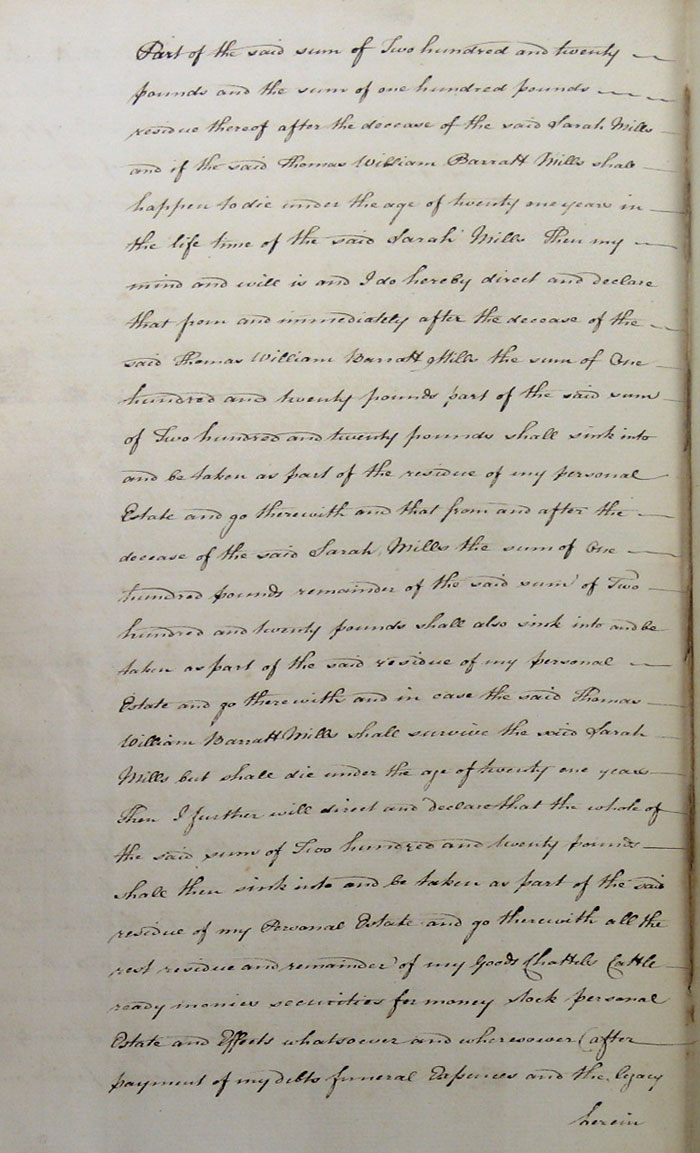 Part of the said sum of Two hundred and twenty
pounds and the sum of one hundred pounds
residue thereof after the decease of the said Sarah Mills
and if the said Thomas William Barratt Mills shall
happen to die under the age of twenty one years in
the life time of the said Sarah Mills Then my
mind and will is and I do hereby direct and declare
that from and immediately after the decease of the
said Thomas William Barratt Mills the sum of One
hundred and twenty pounds part of the said sum
of Two hundred and twenty pounds shall sink into
and be taken as part of the residue of my personal
Estate and go therewith and that from and after the
decease of the said Sarah Mills the sum of One
hundred pounds remainder of the said sum of Two
hundred and twenty pounds shall also sink into and be
taken as part of the said residue of my personal
Estate and go therewith and in case the said Thomas
William Barratt Mills shall survive the said Sarah
Mills but shall die under the age of twenty one years
Then I further will direct and declare that the whole of
the said sum of Two hundred and twenty pounds
shall then sink into and be taken as part of the said
residue of my Personal Estate and go therewith all the
rest residue and remainder of my Goods Chattels Cattle
ready monies securities for money stock personal
Estate and Effects whatsoever and wheresoever (after
payment of my debts funeral Expences and the legacy
herein